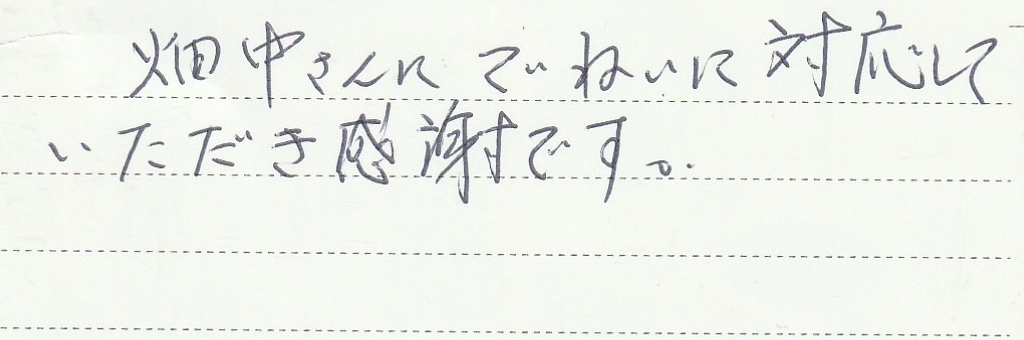 畑中さんに ていねいに 対応して
いただき感謝です。